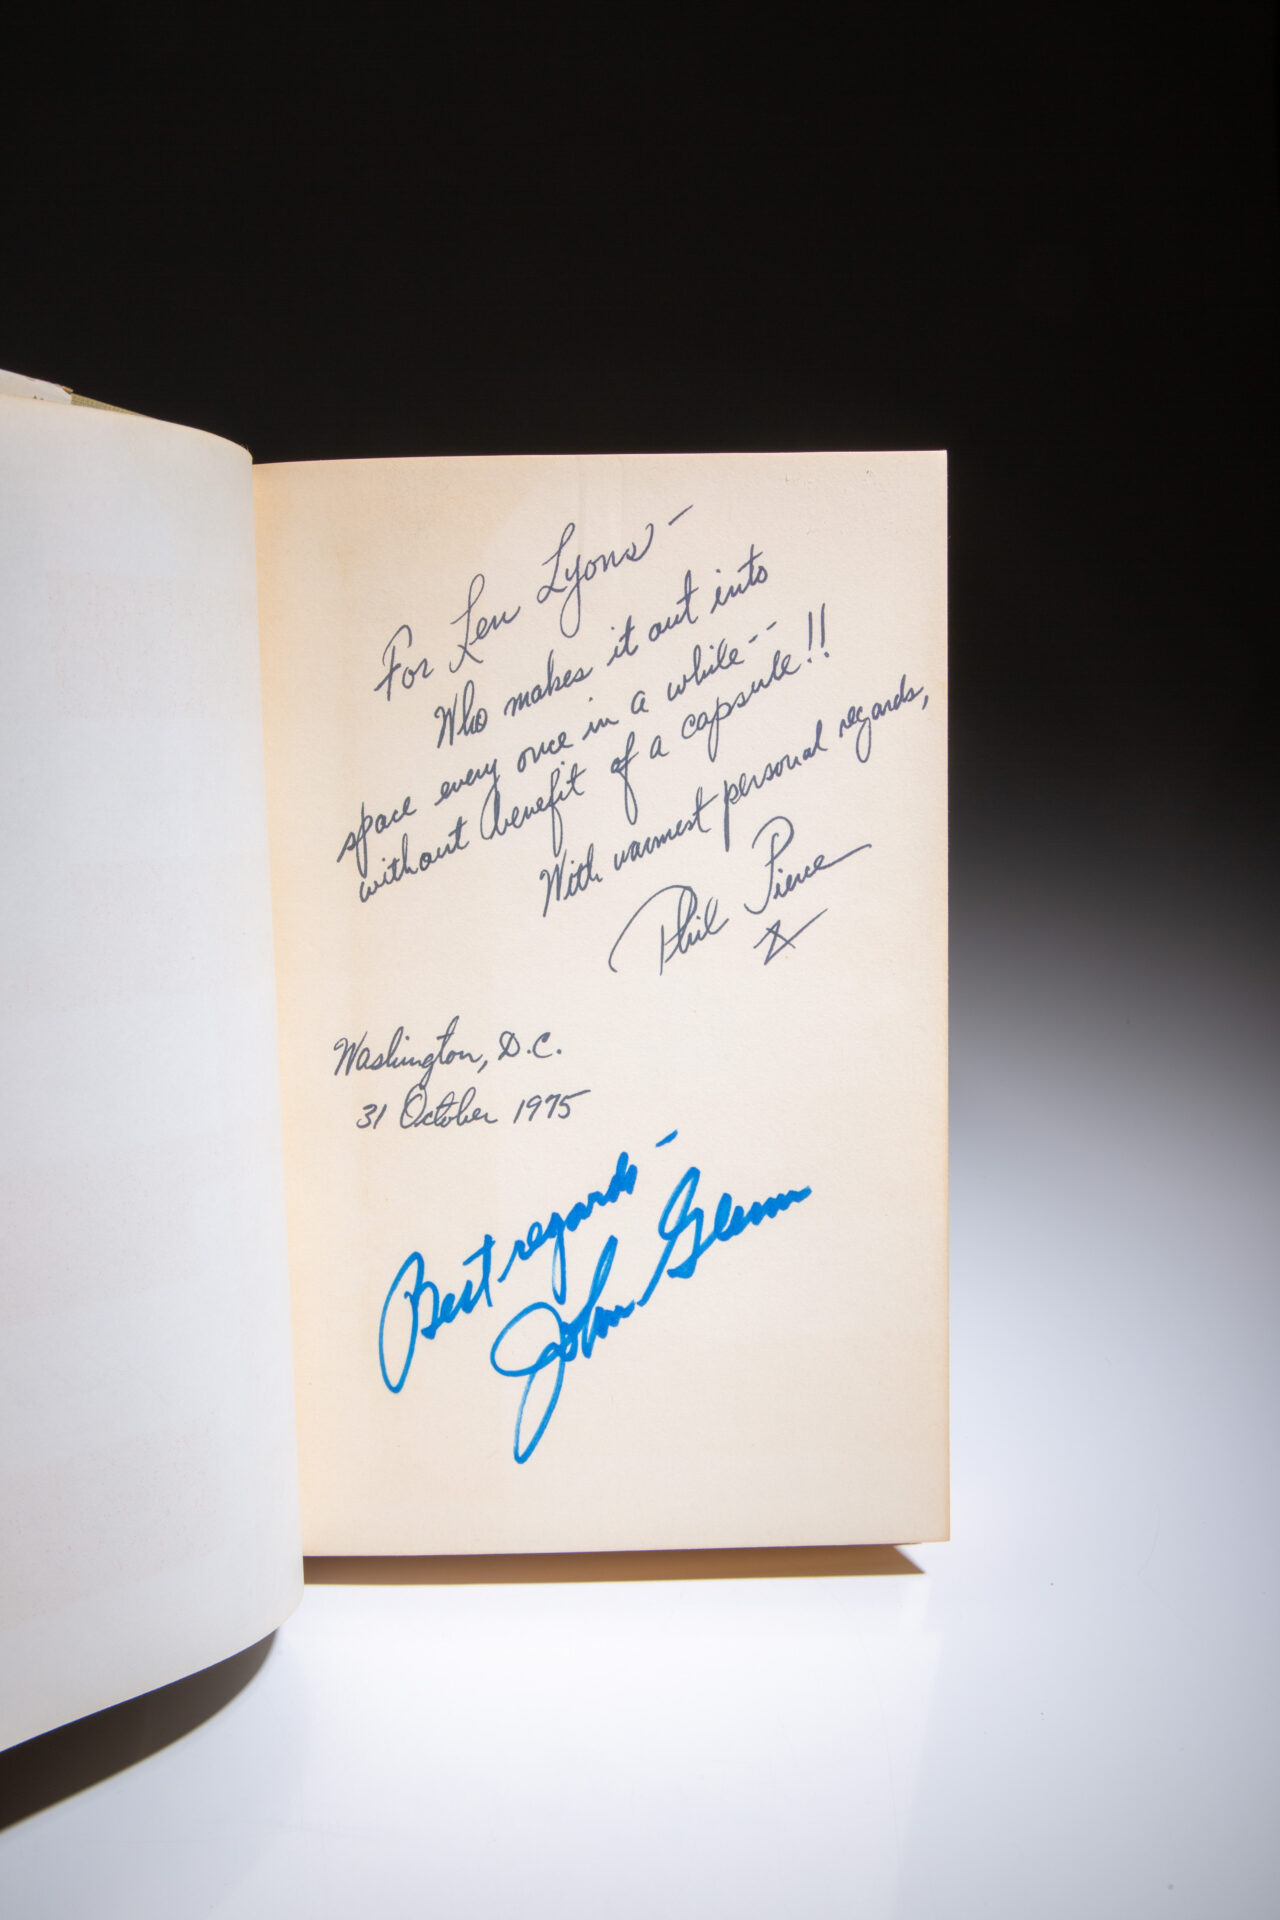 For Len Lyons -
Who makes it out into
space every once in a while--
without benefit of a capsule!!
With warmest personal regards,
Phil Pierce
Washington, D.C.
31 October 1975
Best regards -
John Glenn